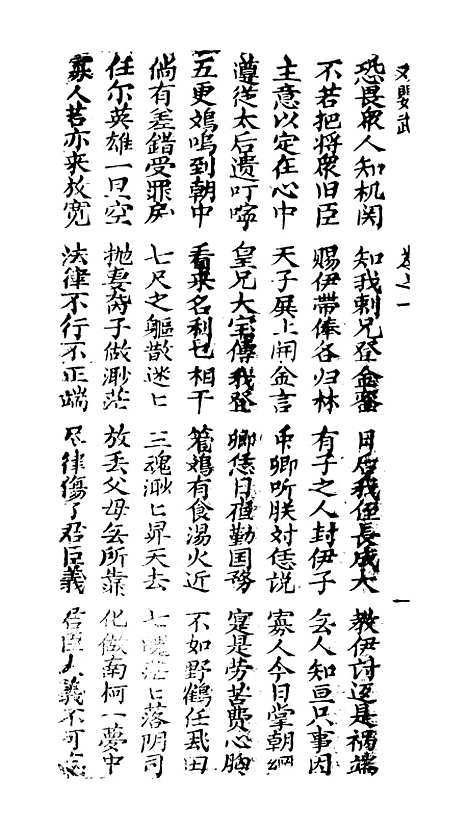 卷之一 一
恐畏眾人知机関 知我刺兄登金鑾 日后我侄長成大 教伊討返是禍端
不若把将眾旧臣 賜伊帶俸各归林 有子之人封伊子 無人知亘只事因
主意以定在心中 天子展上開金言 币卿听朕対恁説 寡人今日掌朝綱
遵從太后遗叮嚀 皇兄大宝傳我登 卿恁日夜勤国務 寔是劳苦費心胸
五更鸡鳴到朝中 看来名利乜相干 籠鸡有食湯火近 不如野鶴任飛田
倘有差錯受罪 七尺之軀散迷匕 三魂渺匕昇天去 七魄茫匕落阴司
任尔英雄一旦空 抛妻离子做渺茫 放丢父母無所靠 化做南柯一夢中
寡人若亦来放宽 法律不行不正端 尽律傷了君臣義 君臣大義不可